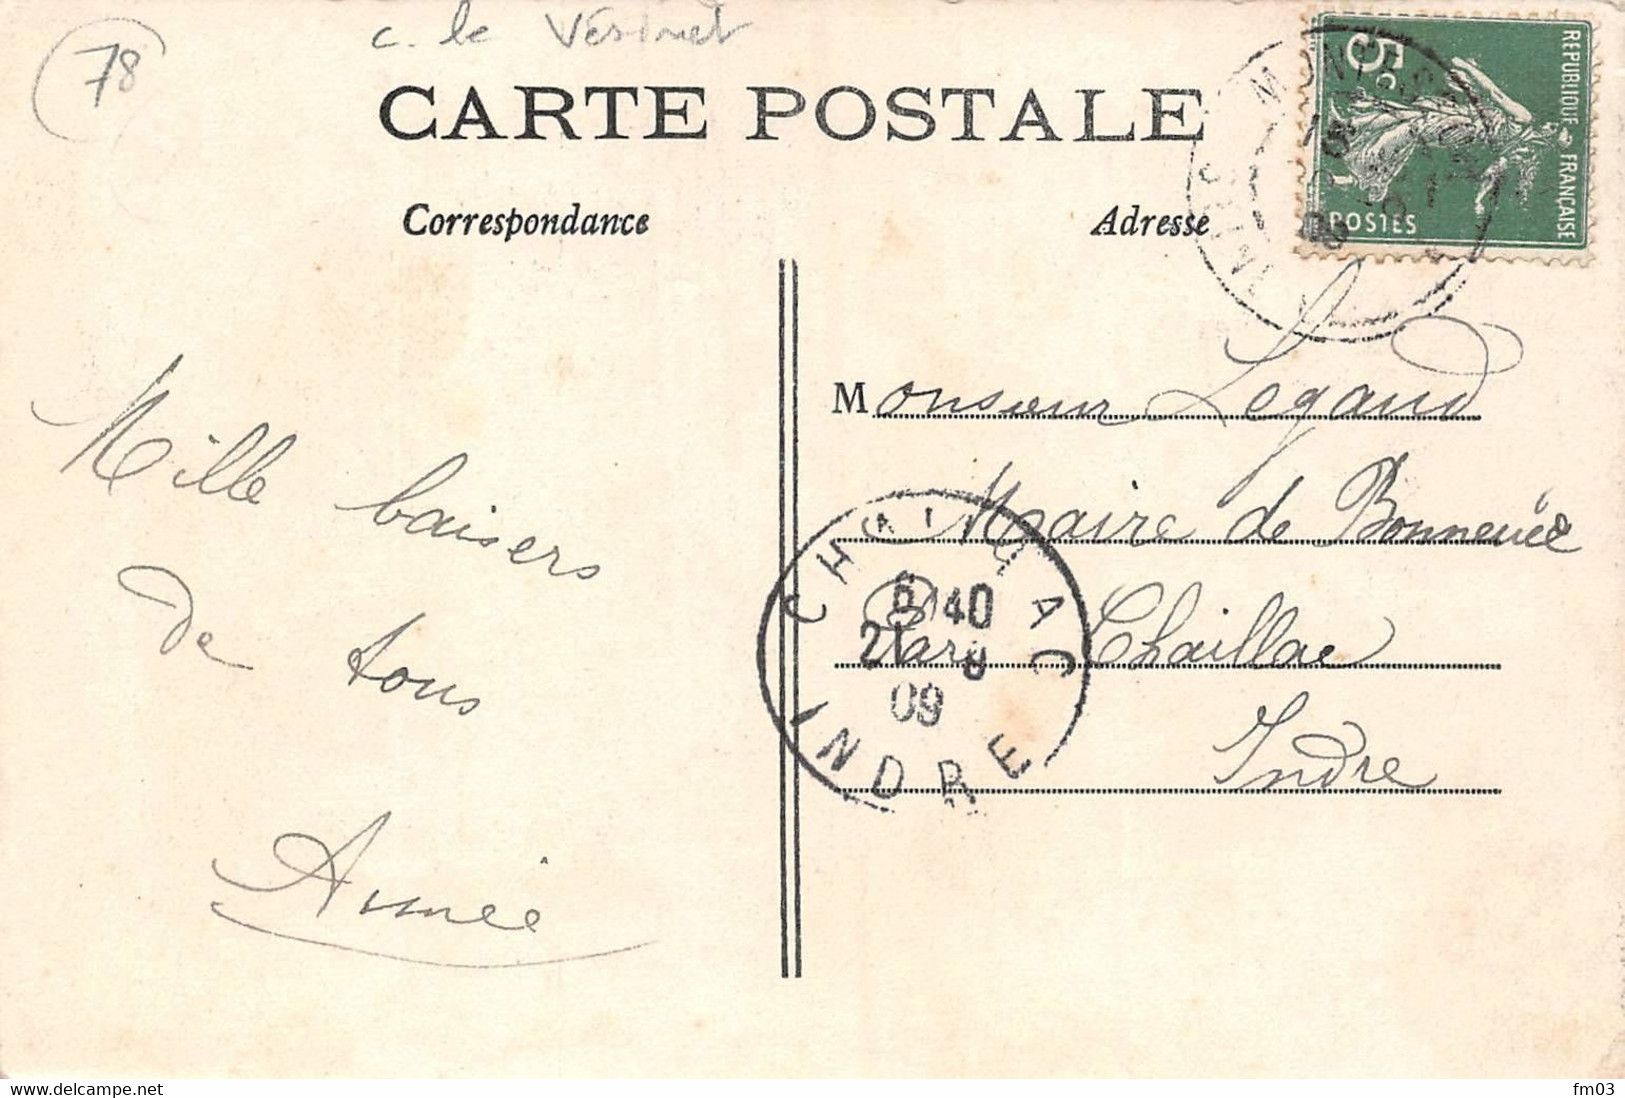 78
c. le Vésinet
CARTE POSTALE
Correspondance
Adresse
5c
REPUBLIQUE FRANÇAISE
POSTES
Mille baisers
de tous
Aimée
Monsieur Legaud
Maire de Bonneuil
Par Chaillac
Indre
CHAILLAC
8 40
21 8
09
INDRE
website: delcampe.net
fm03